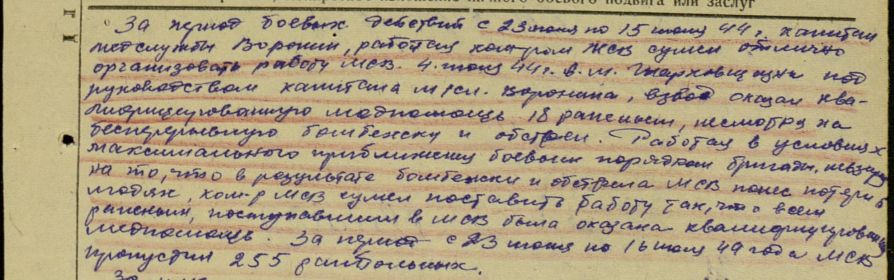 изложение личного боевого подвига или заслуг
За период боевых действий с 23 июня по 15 июля 44 г. капитан
медслужбы Воронин, работая ком-ром МСВ сумел отлично
организовать работу МСВ. 4 июля 44 г. в м. под
руководством капитана м/сл. Воронина, взвод оказал ква-
лифицированную медпомощь 18 раненым, несмотря на
бесперерывную бомбежку и обстрел. Работая в условиях
максимального приближения боевым порядкам бригады, невзирая
на то, что в результате бомбежки и обстрела МСВ понес потери в
людях, ком-р МСВ сумел поставить работу так, что всем
раненым, поступавшим в МСВ была оказана квалифицированная
медпомощь. За период с 23 июня по 16 июля 44 года МСВ
пропустил 255 ранбольных.